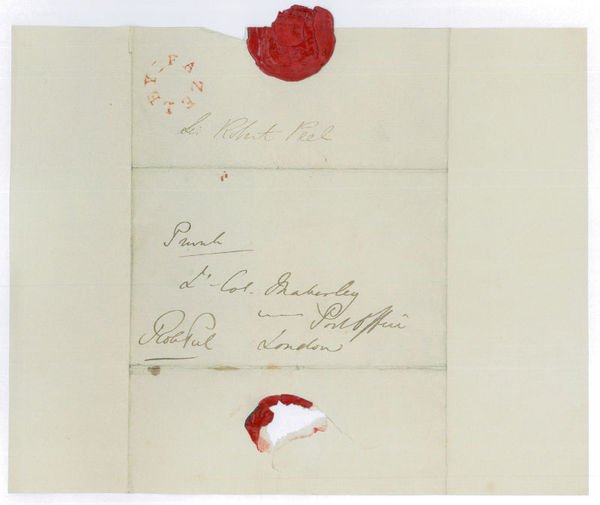 FAZELEY
Sir Robert Peel
Private
Lt. Col. Maberley
Post Office
London
Robt Peel